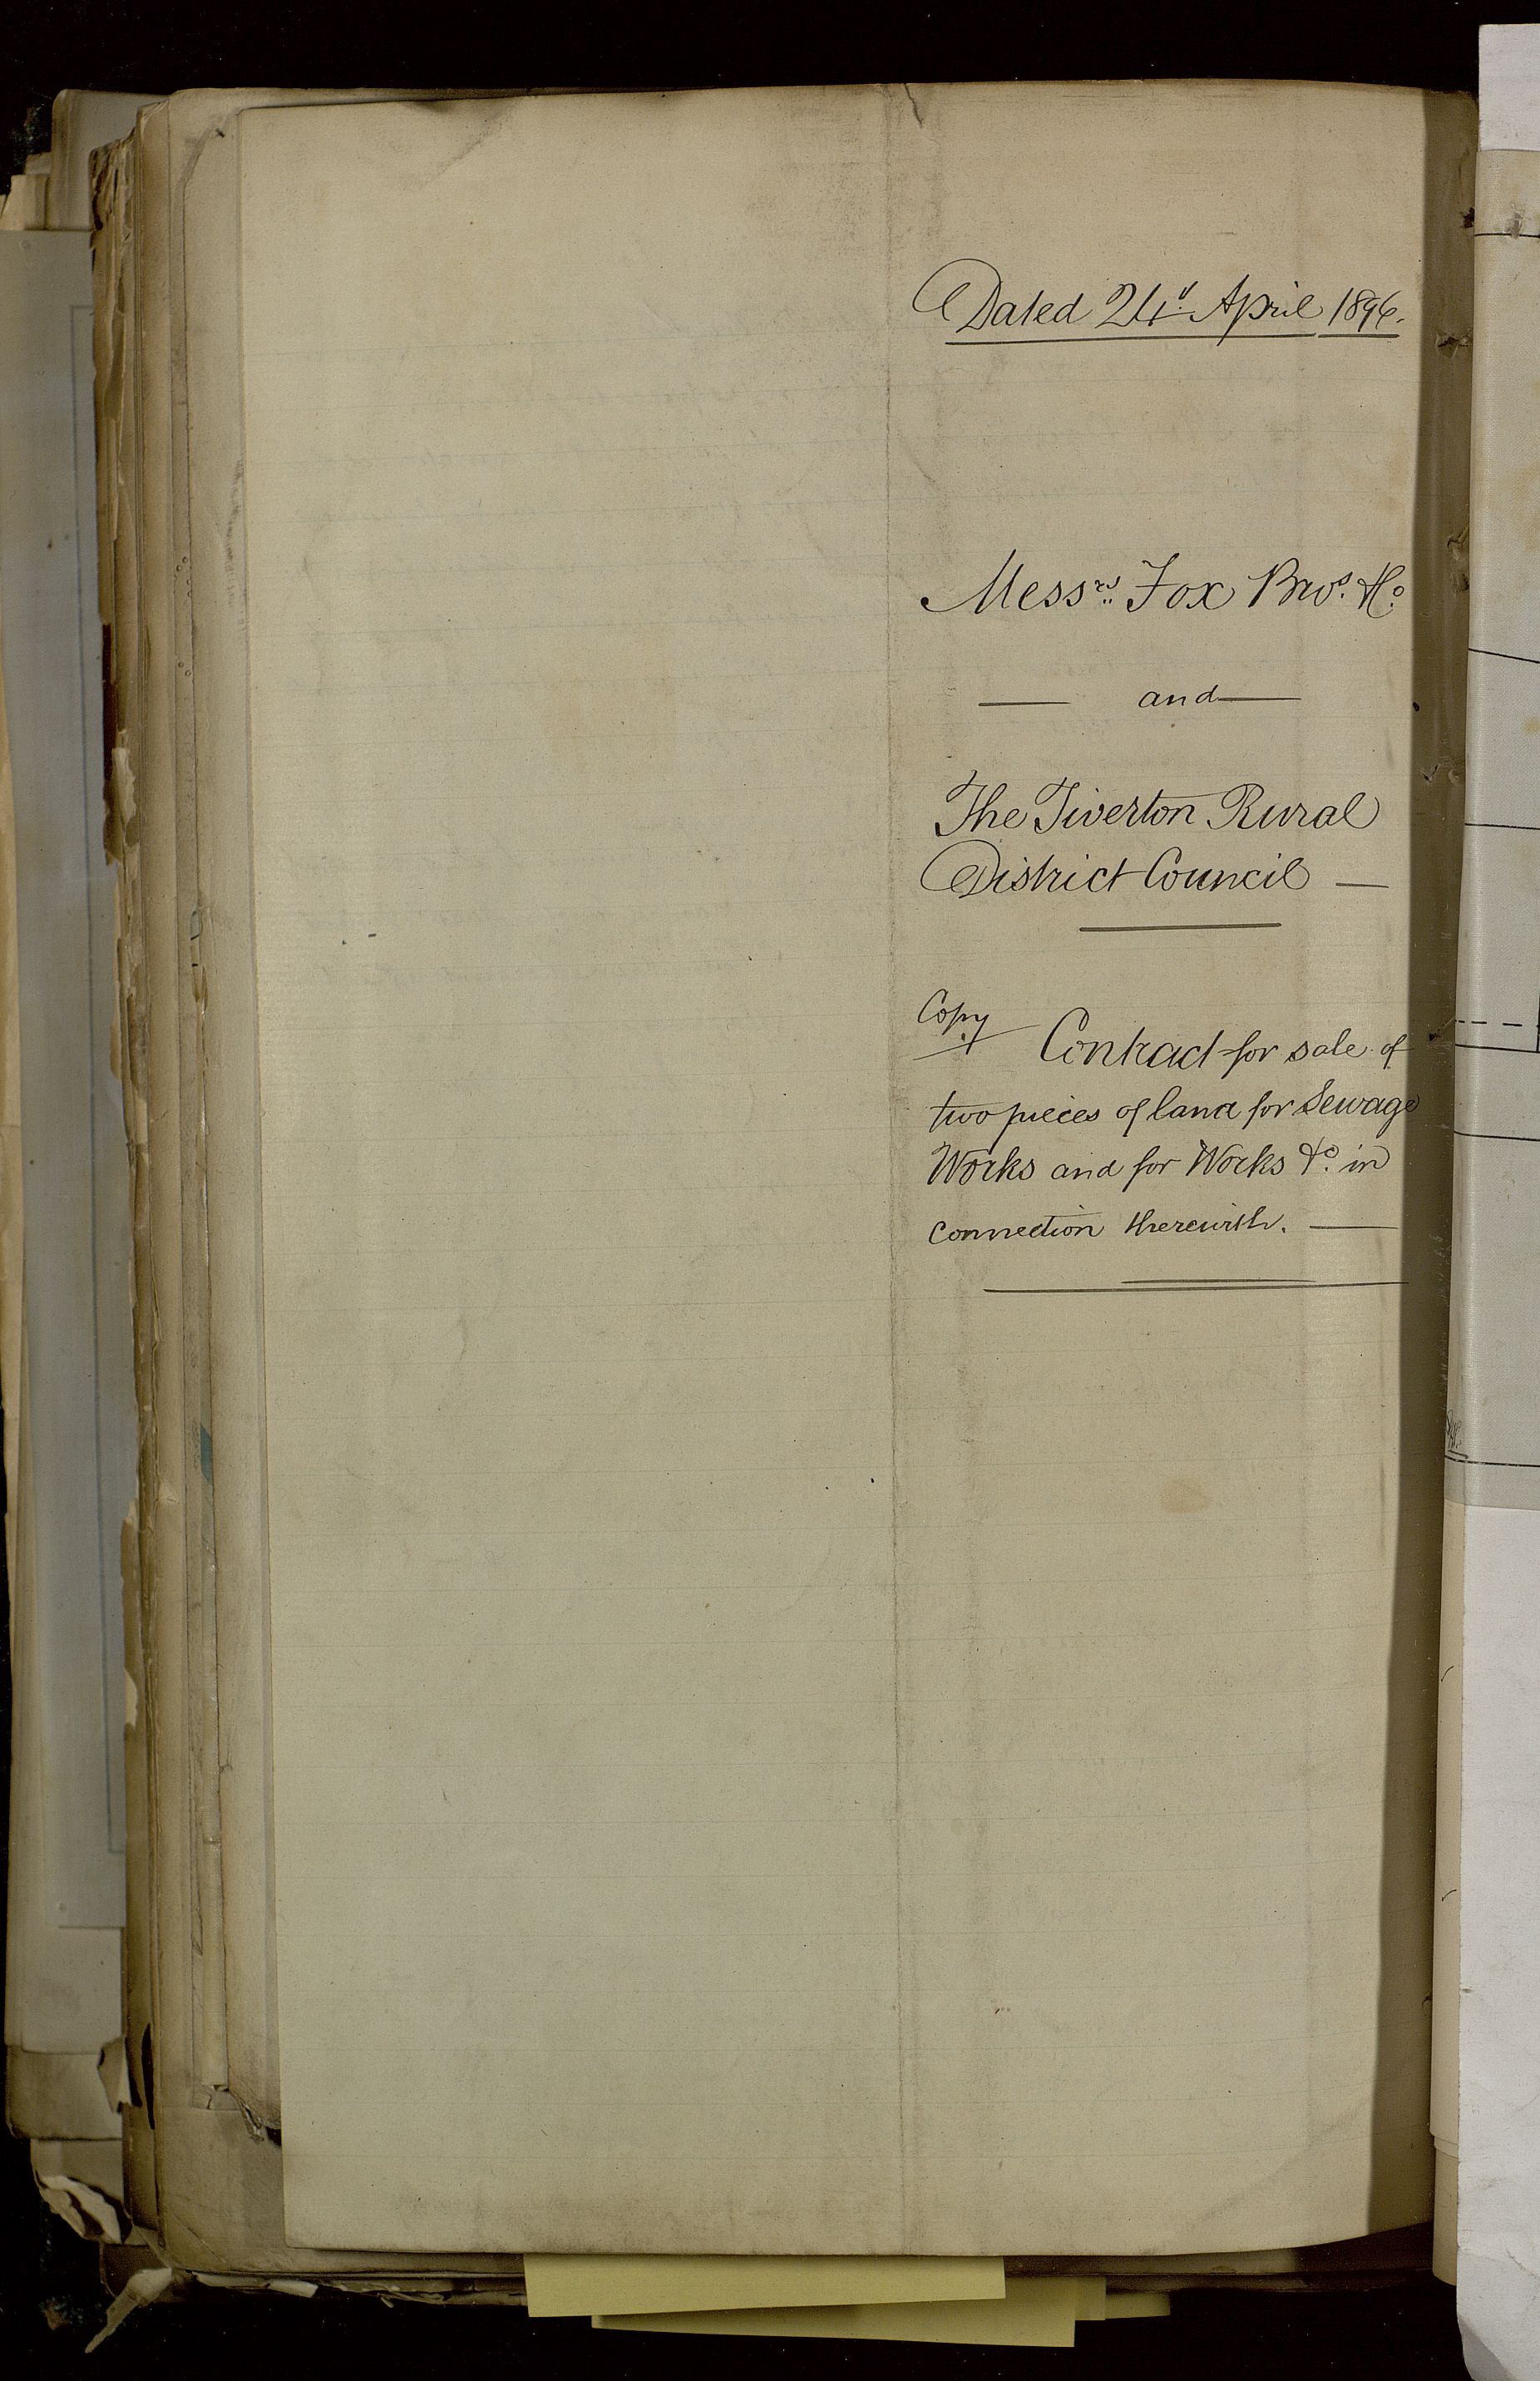 Dated 24th April 1896.
Messrs. Fox Bros. & Co.
and
The Tiverton Rural
District Council
Copy
Contract for sale of
two pieces of land for Sewage
Works and for Works &c. in
connection therewith.